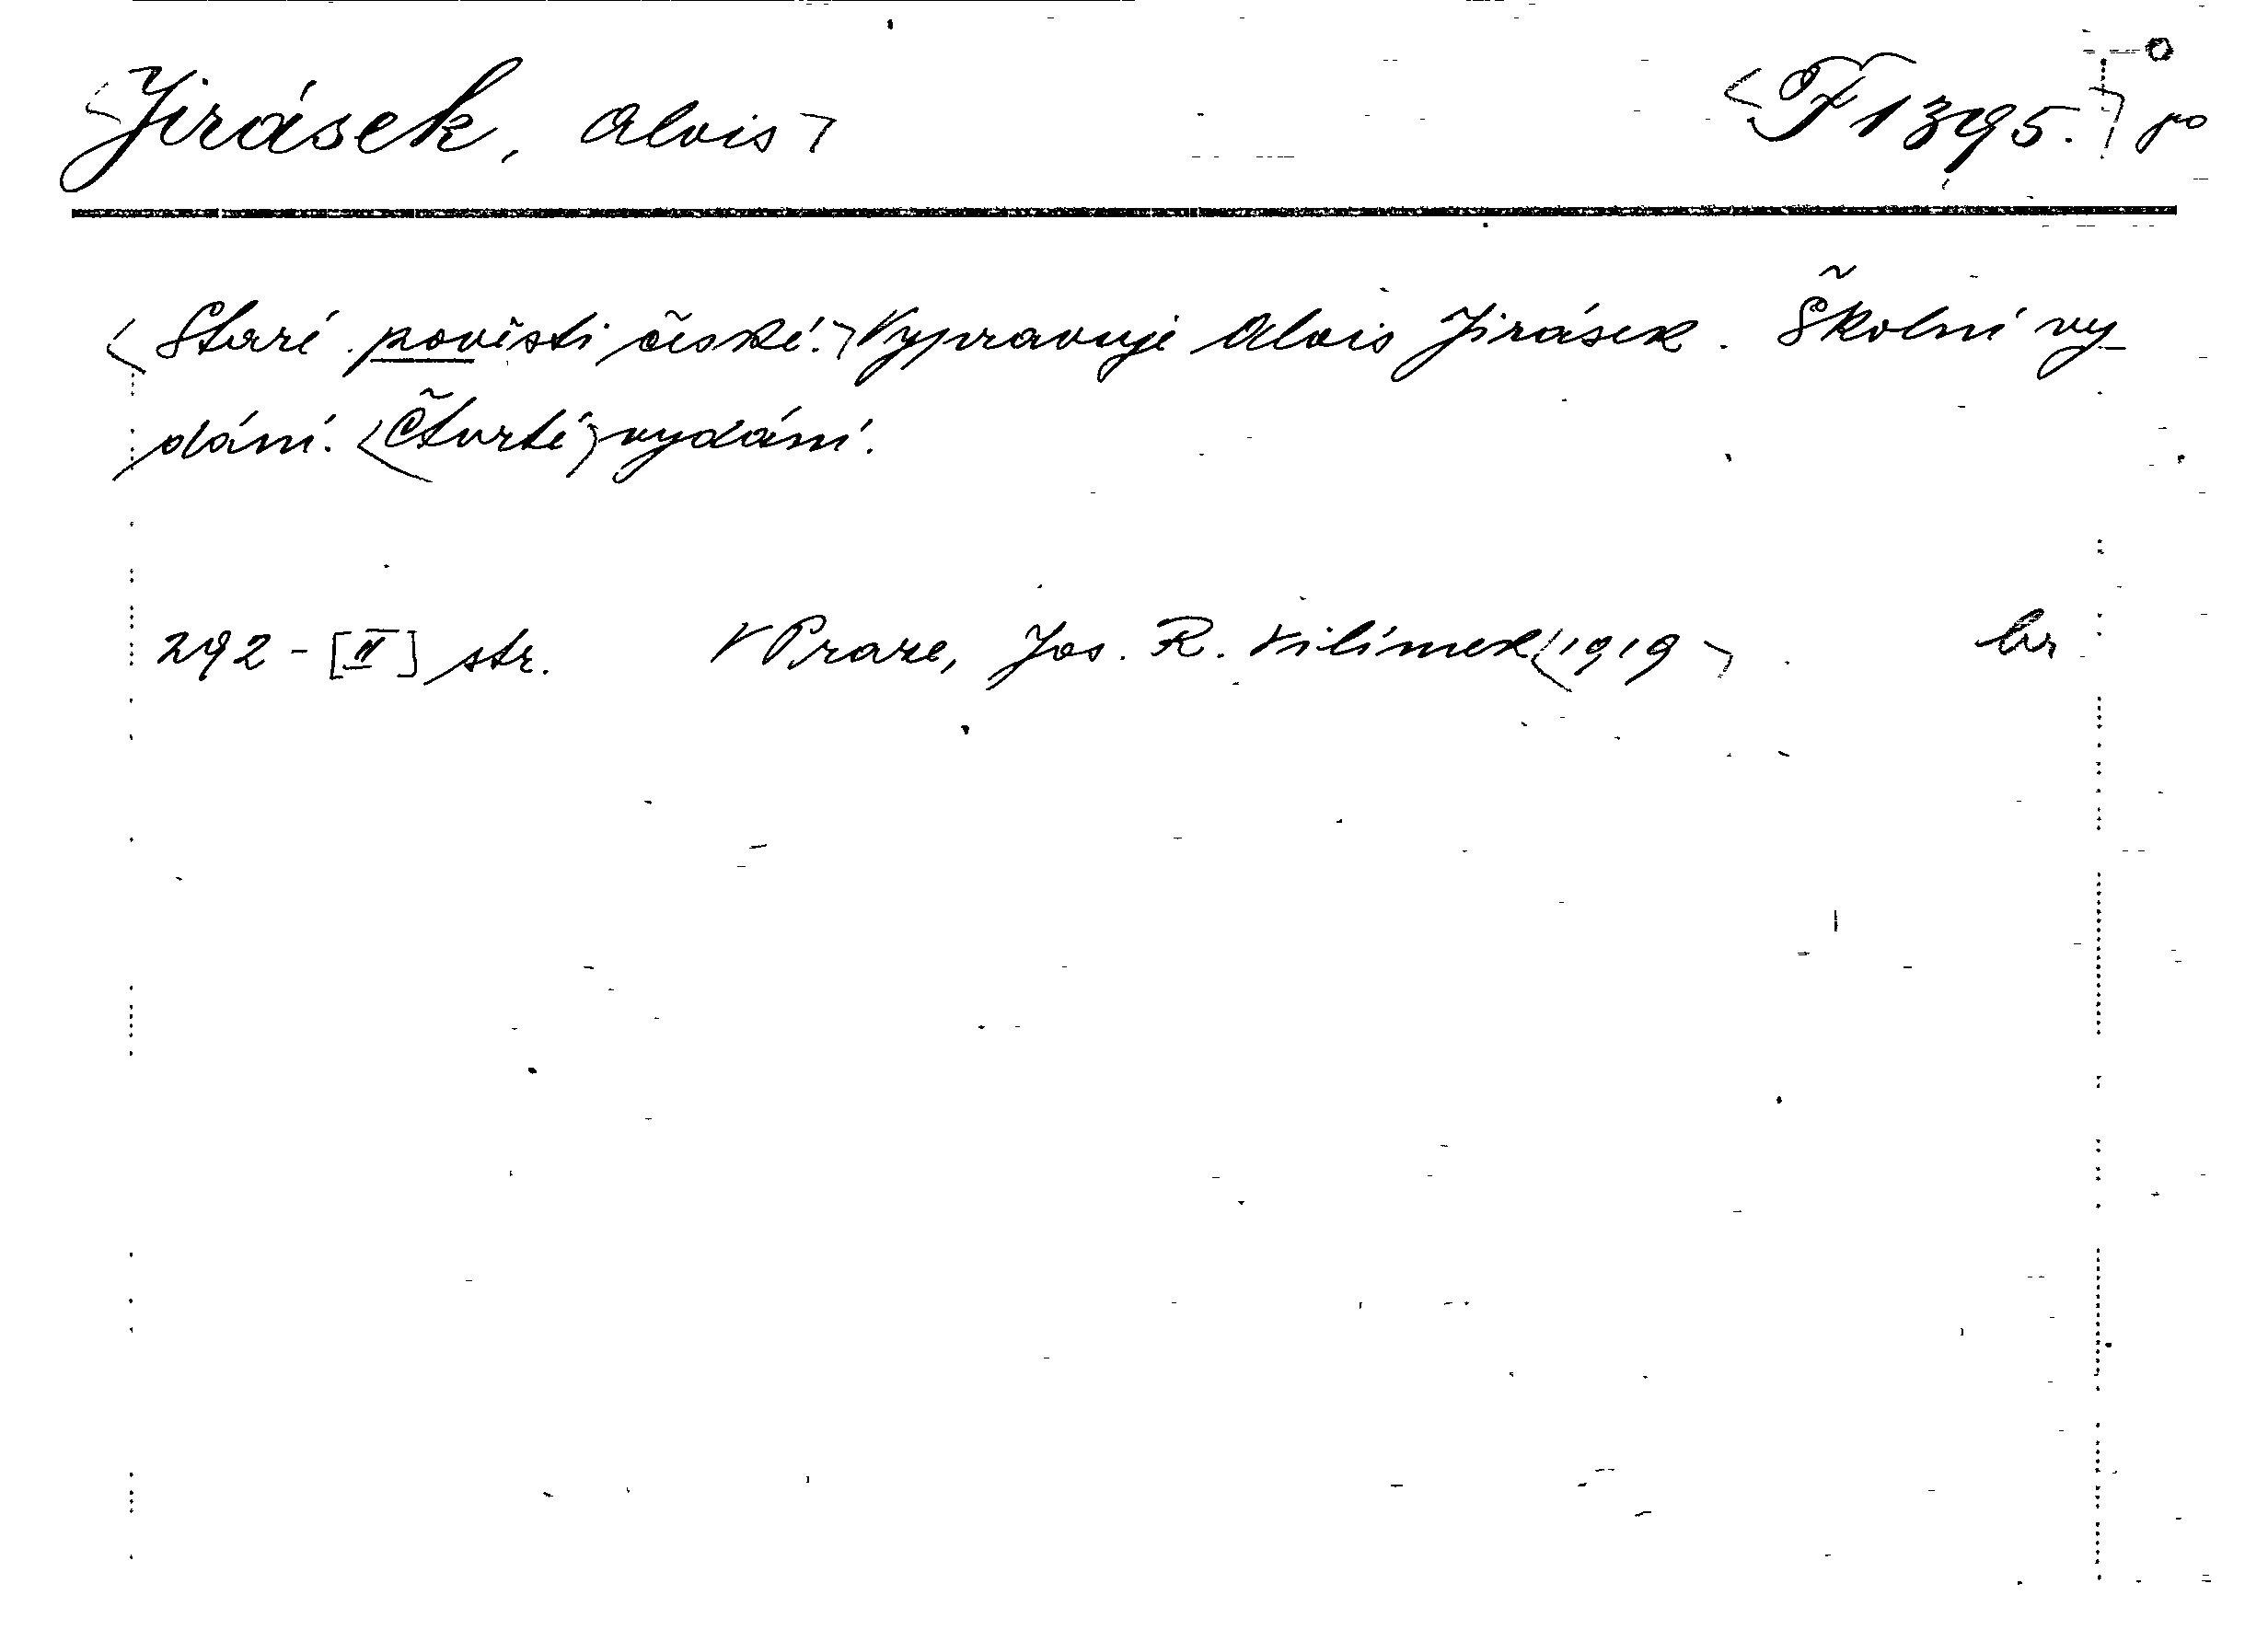 Jirásek, Alois F 1395. po
Staré pověsti české. Vypravuje Alois Jirásek. Školní vy-
dání. Čtvrté vydání.
292 - [II] str. V Praze, Jos. R. Vilímek 1919. br